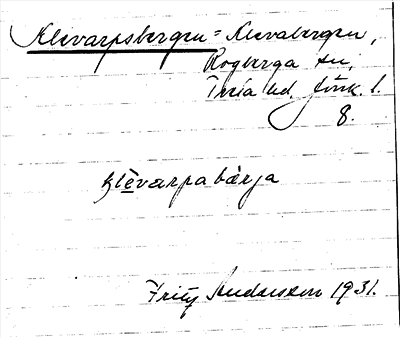 Klevarpsbergen = Klevabergen,
Rogberga sn,
Tveta hd. Jönk. l.
8.
klèvarpabärja
Fritz Andersson 1931.